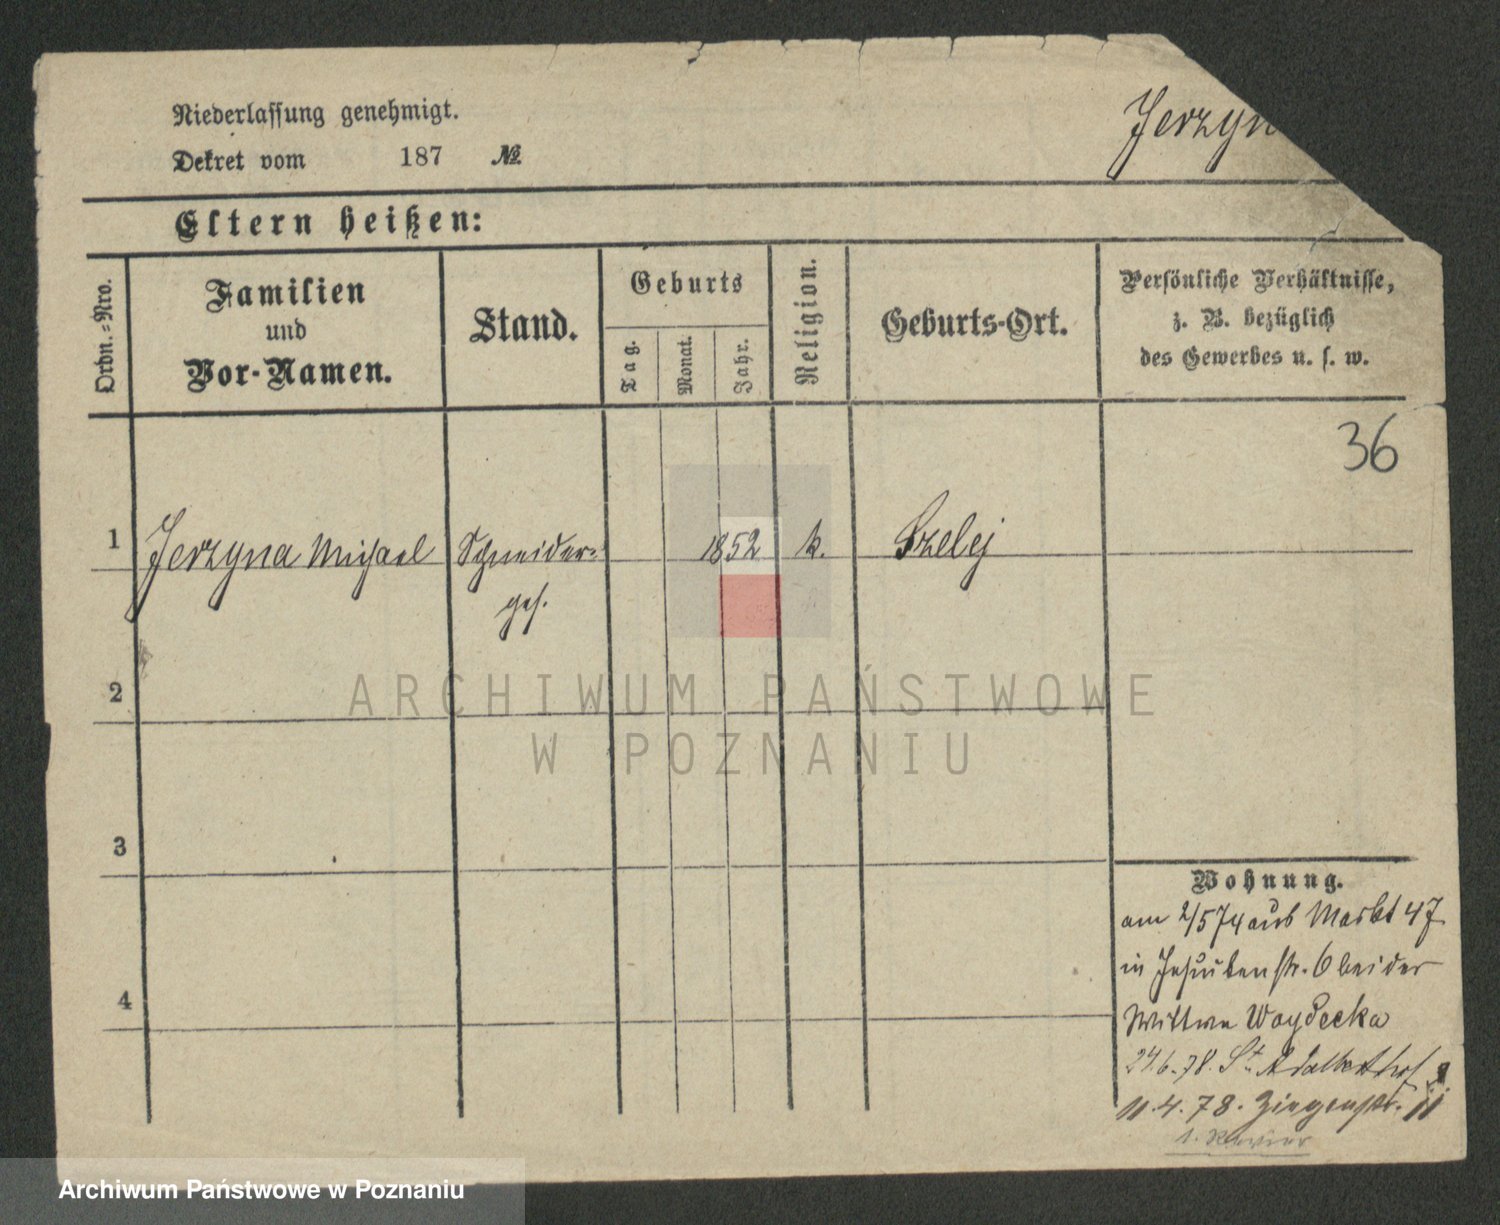 Niederlassung genehmigt.
Dekret vom 187 №
Jerzyn
Eltern heißen:
Ordn.-Nro.
Familien
und
Vor-Namen.
Stand.
Geburts
Tag.
Monat.
Jahr.
Religion.
Geburts-Ort.
Persönliche Verhältnisse,
z. B. bezüglich
des Gewerbes u. s. w.
36
1 Jerzyna Michael Schneider= 1852 k. Szelej
ges.
2
ARCHIWUM PAŃSTWOWE
W POZNANIU
3
4
Wohnung.
am 2/5 74 aus Markt 47
in Jesuitenstr. 6 bei der
Wittwe Woydecka
24.6.78. St. Adalbert
11.4.78. Ziegenstr. 11
1. Revier
Archiwum Państwowe w Poznaniu